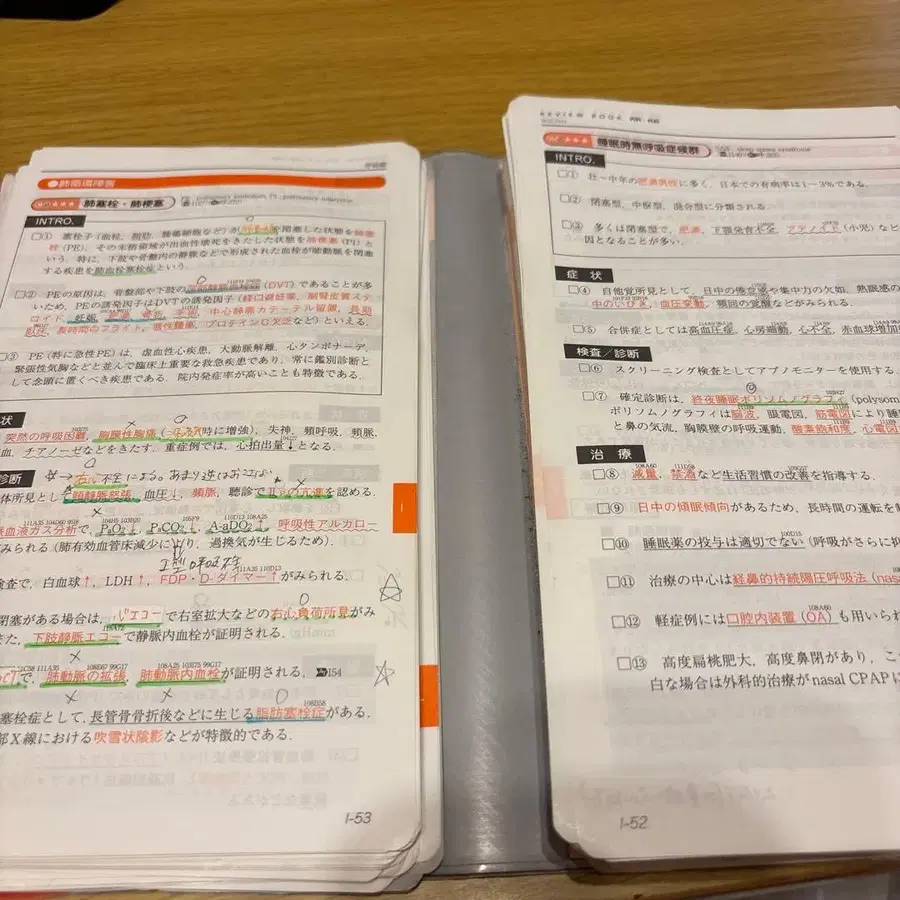 肺循環障害
肺塞栓・肺梗塞
INTRO.
□① 塞栓子(血栓，脂肪，腫瘍細胞など)が肺動脈を閉塞した状態を肺塞
栓(PE)，その末梢領域が出血性壊死をきたした状態を肺梗塞(PI)と
いう．特に，下肢や骨盤内の静脈などで形成された血栓が肺動脈を閉塞
する疾患を肺血栓塞栓症という．
□② PEの原因は，骨盤部や下肢の深部静脈血栓症(DVT)であることが多
いため，PEの誘発因子はDVTの誘発因子(経口避妊薬，副腎皮質ステ
ロイド，妊娠，肥満，骨折，手術，中心静脈カテーテル留置，長期
臥床，長時間のフライト，悪性腫瘍，プロテインC欠乏など)といえる．
□③ PE(特に急性PE)は，虚血性心疾患，大動脈解離，心タンポナーデ，
緊張性気胸などと並んで臨床上重要な救急疾患であり，常に鑑別診断と
して念頭に置くべき疾患である．院内発症率が高いことも特徴である．
状
突然の呼吸困難，胸膜性胸痛(時に増強)，失神，頻呼吸，頻脈，
血，チアノーゼなどをきたす．重症例では，心拍出量↓となる．
診断
体所見として頸静脈怒張，血圧↓，頻脈，聴診でⅡpの亢進を認める．
脈血液ガス分析で，PaO₂↓，PaCO₂↓，A-aDO₂↑，呼吸性アルカロー
みられる(肺有効血管床減少により，過換気が生じるため)．
Ⅰ型呼吸不全
検査で，白血球↑，LDH↑，FDP・D-ダイマー↑がみられる．
閉塞がある場合は，心エコーで右室拡大などの右心負荷所見がみ
た，下肢静脈エコーで静脈内血栓が証明される．
CTで，肺動脈の拡張，肺動脈内血栓が証明される．154
塞栓症として，長管骨骨折後などに生じる脂肪塞栓症がある．
部X線における吹雪状陰影などが特徴的である．
I-53
REVIEW BOOK
睡眠時無呼吸症候群
INTRO.
□① 壮〜中年の肥満男性に多く，日本での有病率は1〜3%である．
□② 閉塞型，中枢型，混合型に分類される．
□③ 多くは閉塞型で，肥満，下顎発育不全，アデノイド(小児)など
因となることが多い．
症 状
□④ 自他覚所見として，日中の倦怠感や集中力の欠如，熟眠感の
中のいびき，血圧変動，頻回の覚醒などがみられる．
□⑤ 合併症としては高血圧症，心房細動，心不全，赤血球増加
検査／診断
□⑥ スクリーニング検査としてアプノモニターを使用する．
□⑦ 確定診断は，終夜睡眠ポリソムノグラフィ(polysom
ポリソムノグラフィは脳波，眼電図，筋電図により睡
と鼻の気流，胸腹壁の呼吸運動，酸素飽和度，心電図
治 療
□⑧ 減量，禁酒など生活習慣の改善を指導する．
□⑨ 日中の傾眠傾向があるため，長時間の運転を
□⑩ 睡眠薬の投与は適切でない(呼吸がさらに抑
□⑪ 治療の中心は経鼻的持続陽圧呼吸法(nas
□⑫ 軽症例には口腔内装置(OA)も用いら
□⑬ 高度扁桃肥大，高度鼻閉があり，こ
白な場合は外科的治療がnasal CPAPに
I-52